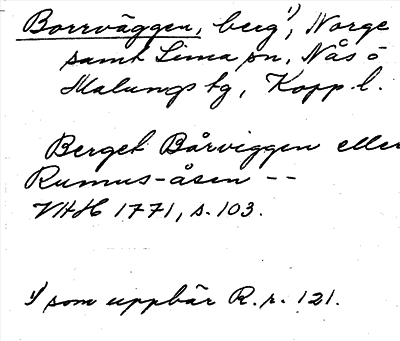 Borrväggen, berg¹), Norge
samt Lima sn, Nås o
Malungs tg, Kopp. l.
Berget Bårviggen eller
Rumus-åsen --
VHH 1771, s. 103.
1) som uppbär R.r. 121.